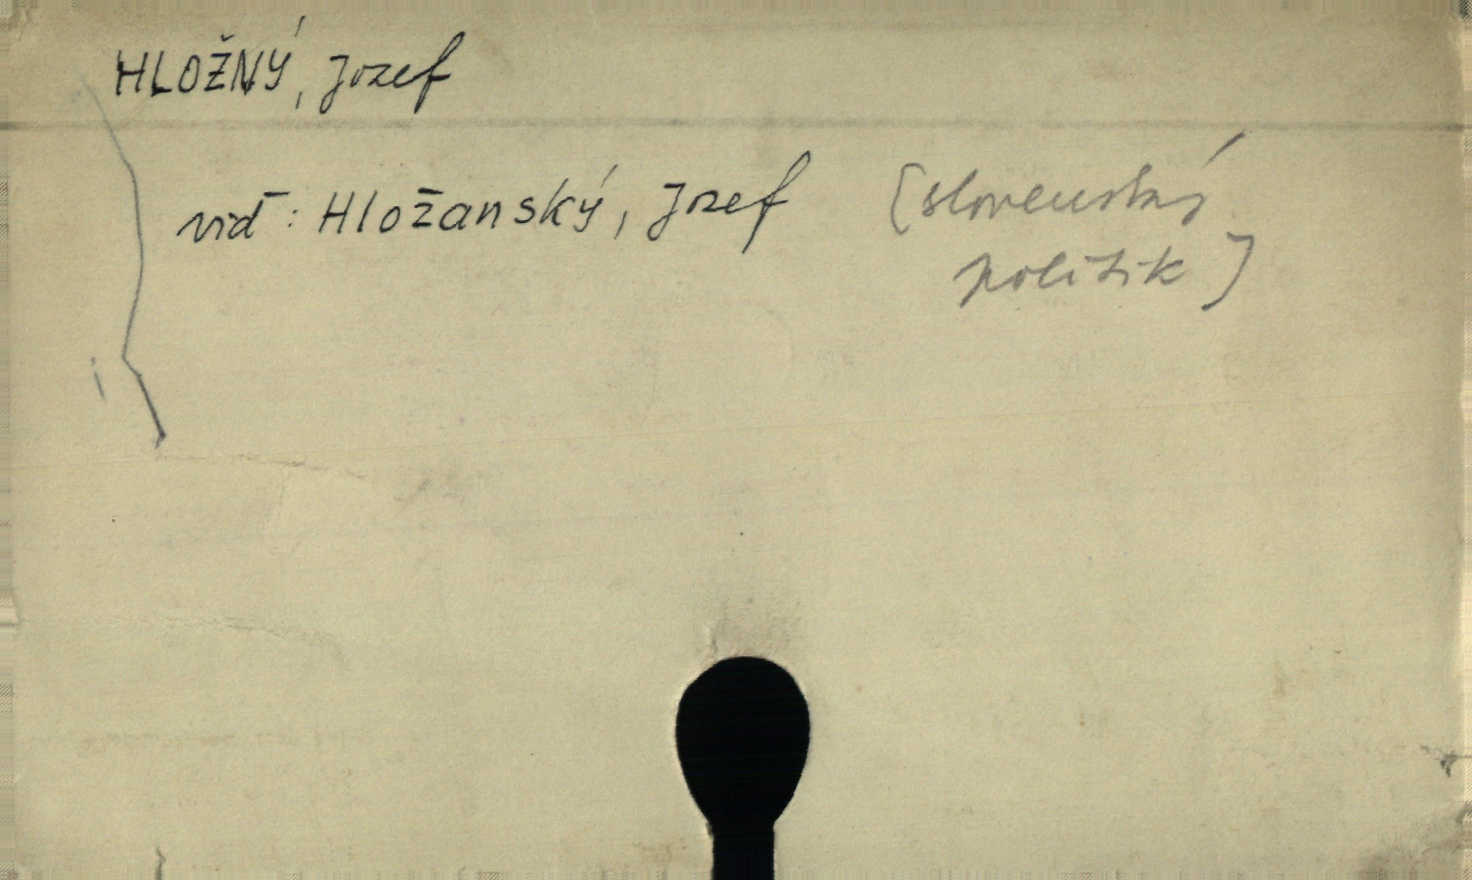 HLOŽNÝ, Jozef
viď: Hložanský, Jozef [slovenský
politik]